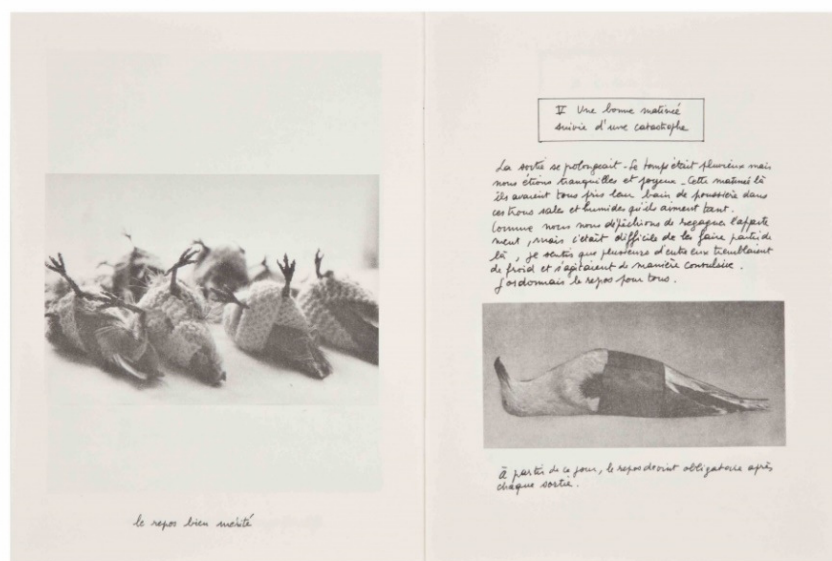 le repos bien mérité
V Une bonne matinée
suivie d'une catastrophe
La sortie se prolongeait - Le temps était pluvieux mais
nous étions tranquilles et joyeux - Cette matinée là
ils avaient tous pris leur bain de poussière dans
ces trous sales et humides qu'ils aiment tant.
Comme nous nous dépêchions de regagner l'apparte
ment, mais c'était difficile de les faire partir de
là, je sentis que plusieurs d'entre eux tremblaient
de froid et s'agitaient de manière convulsive.
J'ordonnais le repos pour tous.
À partir de ce jour, le repos devint obligatoire après
chaque sortie.